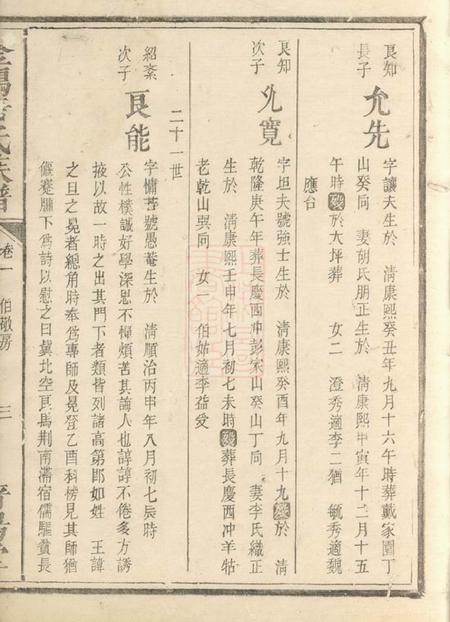 良知
長子
允先
字讓夫生於 清康熙癸丑年九月十六午時葬戴家園丁
山癸向 妻胡氏朋正生於 清康熙甲寅年十二月十五
午時歿於大坪葬 女二 澄秀適李二猶 毓秀適魏
應台
良知
次子
允寬
字坦夫號強士生於 清康熙癸酉年九月十九歿於 清
乾隆庚午年葬長慶西冲彭家山癸山丁向 妻李氏織正
生於 清康熙壬申年七月初七未時歿葬長慶西冲羊牯
老乾山巽向 女一 伯姊適李益爱
二十一世
紹紊
次子
良能
字慵菩號愚菴生於 清順治丙申年八月初七辰時
公性樸誠好學深思不憚煩苦其誨人也諄諄不倦多方誘
掖以故一時之出其門下者類皆列諸高第郎如姓 王諱
之旦之晃者總角時奉爲專師及晃登乙酉科榜見其師猶
偃蹇牖下爲詩以慰之曰冀北空良馬荆南滯宿儒驅賁長
族譜
卷一
伯敬房
三